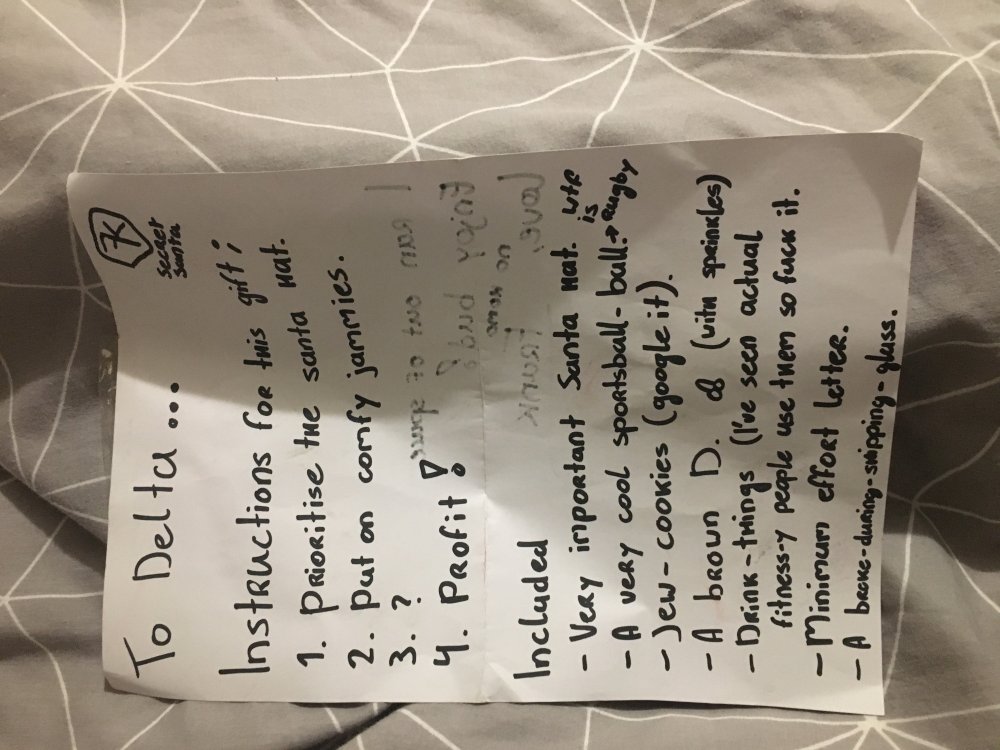 To Delta...
K
secret
santa
Instructions for this gift;
1. Prioritise the santa hat.
2. Put on comfy jammies.
3. ?
4. Profit!
Included
- Very important Santa Hat.
- A very cool sportsball-ball. → wtf is Rugby
- Jew-cookies (google it).
- A brown D. (with sprinkles)
- Drink-things (I've seen actual
fitness-y people use them so fuck it.
- Minimum effort letter.
- A broke-during-shipping-glass.
I ran out of
Enjoy
Love,